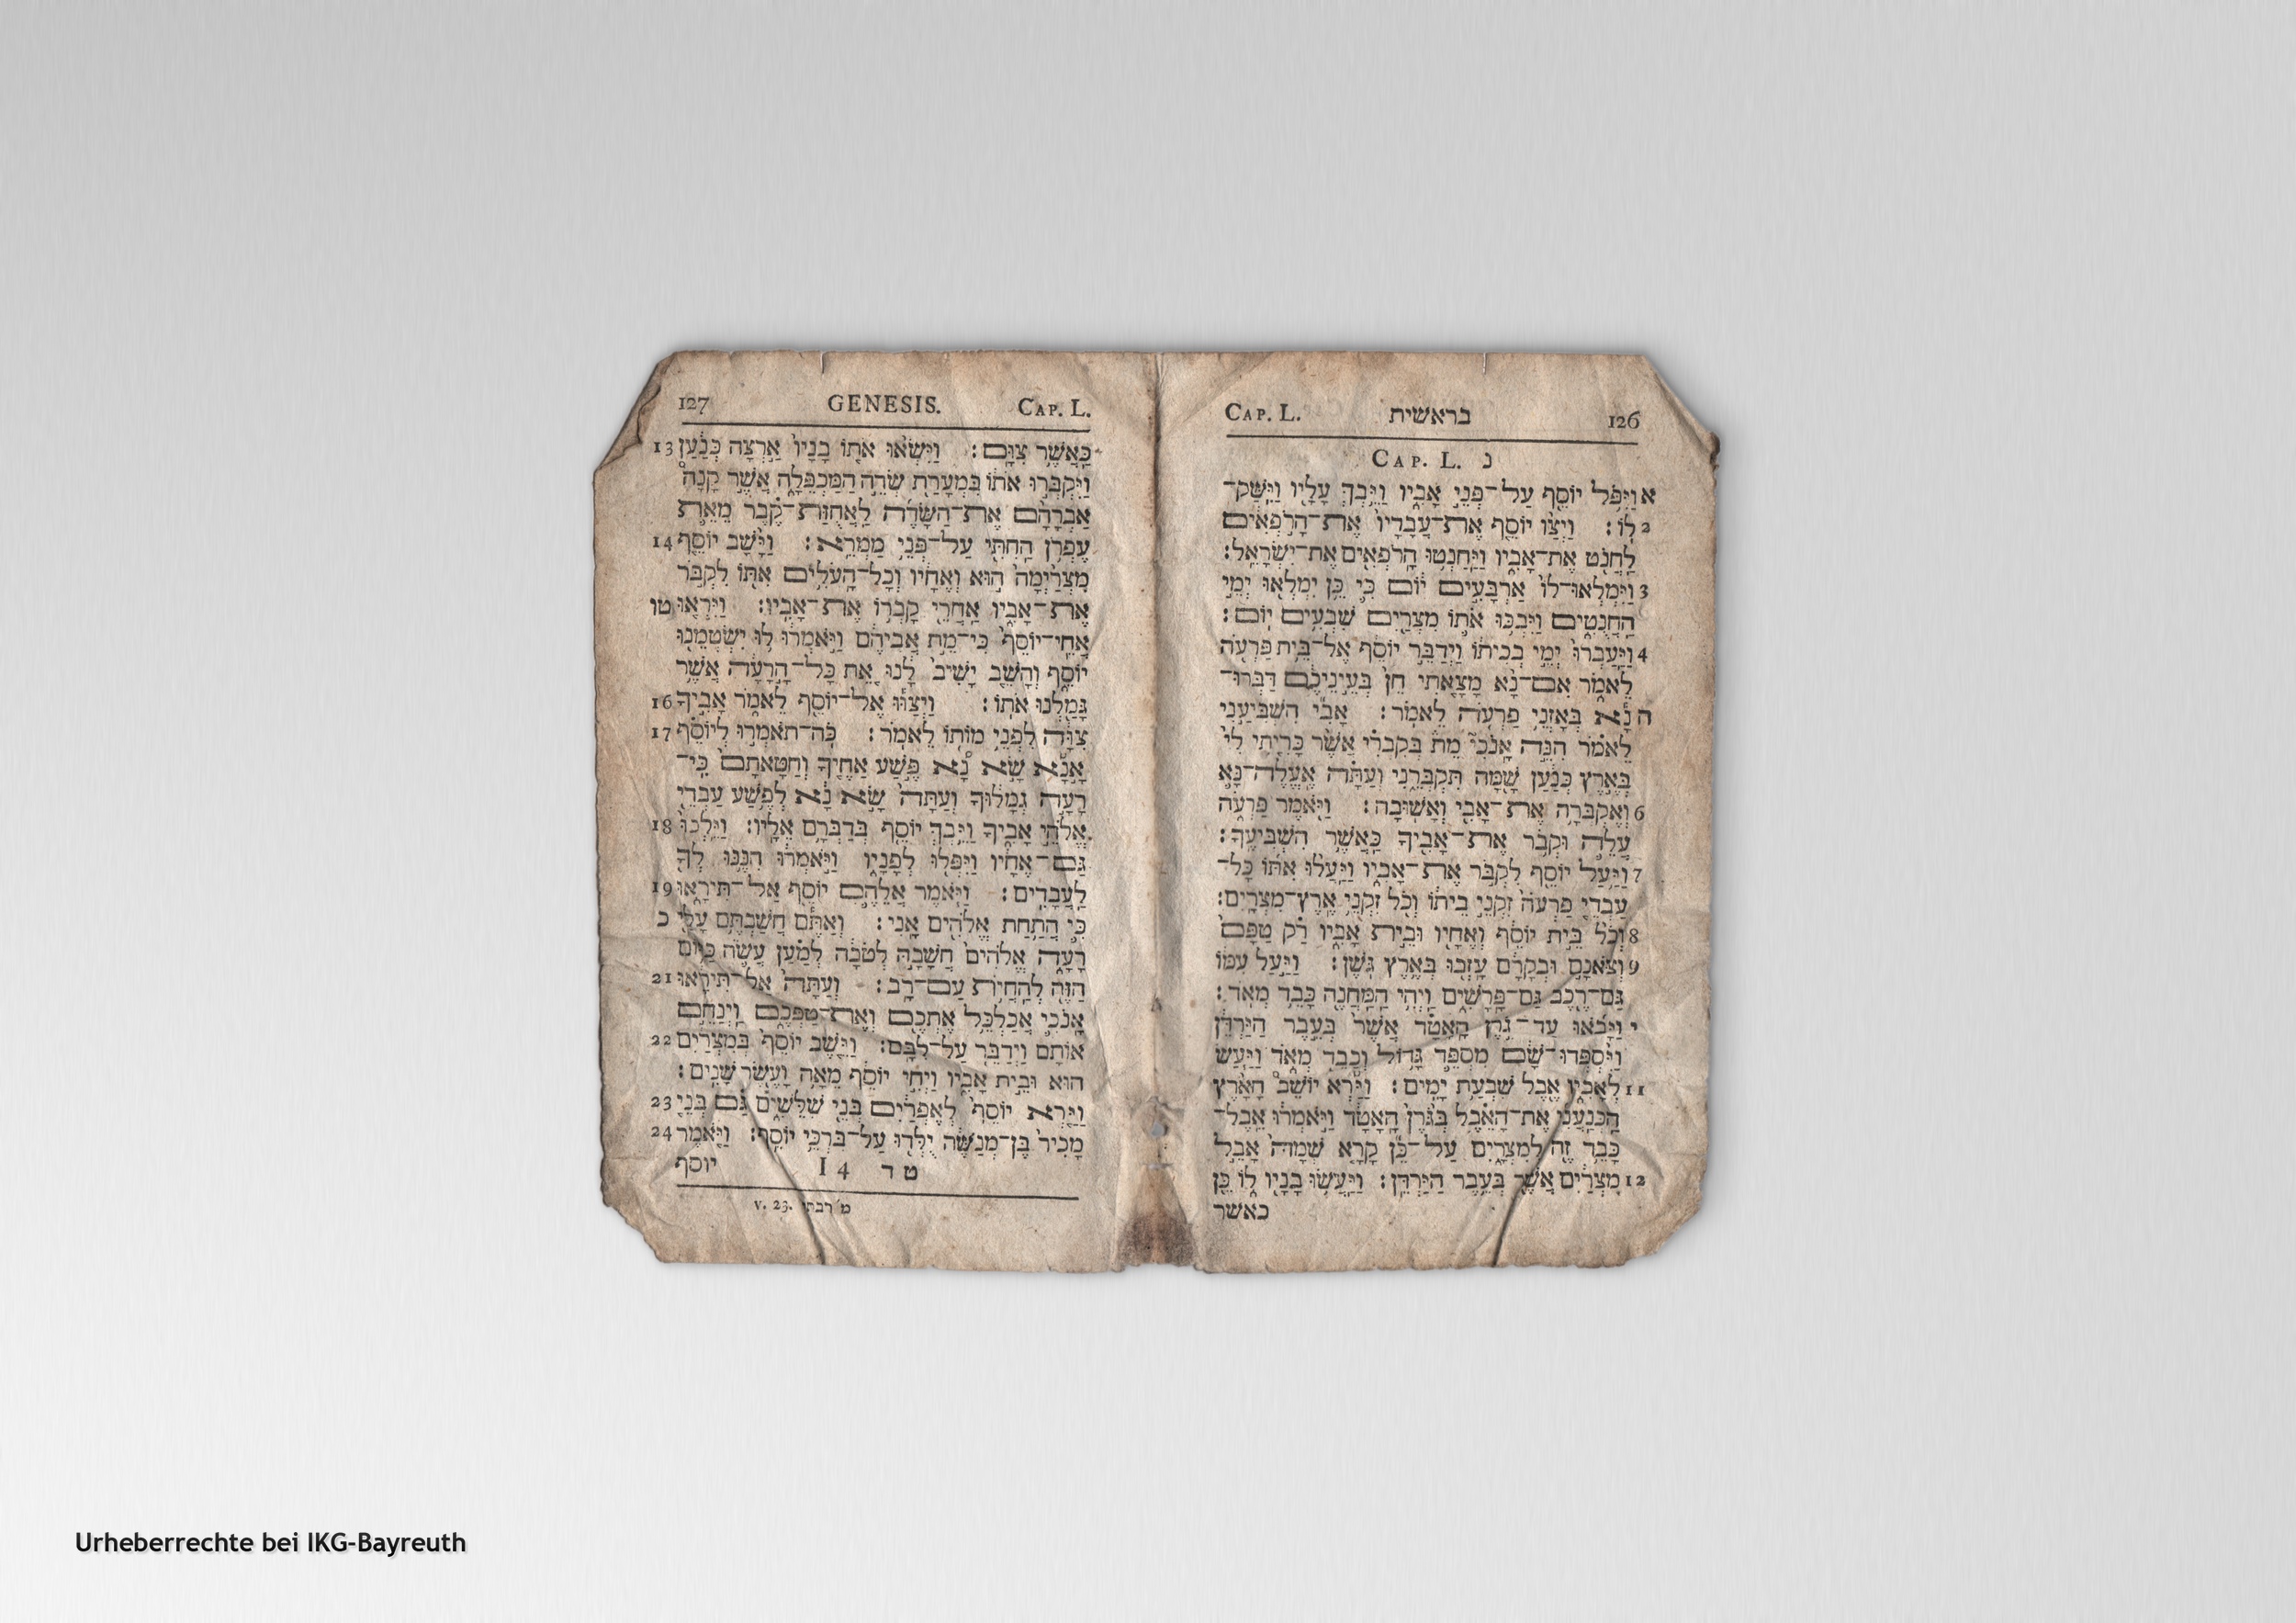 126 בראשית Cap. L.
Cap. L. נ
א וַיִּפֹּל יוֹסֵף עַל־פְּנֵי אָבִיו וַיֵּבְךְּ עָלָיו וַיִּשַּׁק־
2 לוֹ׃ וַיְצַו יוֹסֵף אֶת־עֲבָדָיו אֶת־הָרֹפְאִים
לַחֲנֹט אֶת־אָבִיו וַיַּחַנְטוּ הָרֹפְאִים אֶת־יִשְׂרָאֵל׃
3 וַיִּמְלְאוּ־לוֹ אַרְבָּעִים יוֹם כִּי כֵּן יִמְלְאוּ יְמֵי
הַחֲנֻטִים וַיִּבְכּוּ אֹתוֹ מִצְרַיִם שִׁבְעִים יוֹם׃
4 וַיַּעַבְרוּ יְמֵי בְכִיתוֹ וַיְדַבֵּר יוֹסֵף אֶל־בֵּית פַּרְעֹה
לֵאמֹר אִם־נָא מָצָאתִי חֵן בְּעֵינֵיכֶם דַּבְּרוּ־
ה נָא בְּאָזְנֵי פַרְעֹה לֵאמֹר׃ אָבִי הִשְׁבִּיעַנִי
לֵאמֹר הִנֵּה אָנֹכִי מֵת בְּקִבְרִי אֲשֶׁר כָּרִיתִי לִי
בְּאֶרֶץ כְּנַעַן שָׁמָּה תִּקְבְּרֵנִי וְעַתָּה אֶעֱלֶה־נָּא
6 וְאֶקְבְּרָה אֶת־אָבִי וְאָשׁוּבָה׃ וַיֹּאמֶר פַּרְעֹה
עֲלֵה וּקְבֹר אֶת־אָבִיךָ כַּאֲשֶׁר הִשְׁבִּיעֶךָ׃
7 וַיַּעַל יוֹסֵף לִקְבֹּר אֶת־אָבִיו וַיַּעֲלוּ אִתּוֹ כָּל־
עַבְדֵי פַרְעֹה זִקְנֵי בֵיתוֹ וְכֹל זִקְנֵי אֶרֶץ־מִצְרָיִם׃
8 וְכֹל בֵּית יוֹסֵף וְאֶחָיו וּבֵית אָבִיו רַק טַפָּם
9 וְצֹאנָם וּבְקָרָם עָזְבוּ בְּאֶרֶץ גֹּשֶׁן׃ וַיַּעַל עִמּוֹ
גַּם־רֶכֶב גַּם־פָּרָשִׁים וַיְהִי הַמַּחֲנֶה כָּבֵד מְאֹד׃
י וַיָּבֹאוּ עַד־גֹּרֶן הָאָטָד אֲשֶׁר בְּעֵבֶר הַיַּרְדֵּן
וַיִּסְפְּדוּ־שָׁם מִסְפֵּד גָּדוֹל וְכָבֵד מְאֹד וַיַּעַשׂ
11 לְאָבִיו אֵבֶל שִׁבְעַת יָמִים׃ וַיַּרְא יוֹשֵׁב הָאָרֶץ
הַכְּנַעֲנִי אֶת־הָאֵבֶל בְּגֹרֶן הָאָטָד וַיֹּאמְרוּ אֵבֶל־
כָּבֵד זֶה לְמִצְרָיִם עַל־כֵּן קָרָא שְׁמָהּ אָבֵל
12 מִצְרַיִם אֲשֶׁר בְּעֵבֶר הַיַּרְדֵּן׃ וַיַּעֲשׂוּ בָנָיו לוֹ כֵּן
כאשר
127 GENESIS. Cap. L.
13 כַּאֲשֶׁר צִוָּם׃ וַיִּשְׂאוּ אֹתוֹ בָנָיו אַרְצָה כְּנַעַן
וַיִּקְבְּרוּ אֹתוֹ בִּמְעָרַת שְׂדֵה הַמַּכְפֵּלָה אֲשֶׁר קָנָה
אַבְרָהָם אֶת־הַשָּׂדֶה לַאֲחֻזַּת־קֶבֶר מֵאֵת
14 עֶפְרֹן הַחִתִּי עַל־פְּנֵי מַמְרֵא׃ וַיָּשָׁב יוֹסֵף
מִצְרַיְמָה הוּא וְאֶחָיו וְכָל־הָעֹלִים אִתּוֹ לִקְבֹּר
טו אֶת־אָבִיו אַחֲרֵי קָבְרוֹ אֶת־אָבִיו׃ וַיִּרְאוּ
אֲחֵי־יוֹסֵף כִּי־מֵת אֲבִיהֶם וַיֹּאמְרוּ לוּ יִשְׂטְמֵנוּ
יוֹסֵף וְהָשֵׁב יָשִׁיב לָנוּ אֵת כָּל־הָרָעָה אֲשֶׁר
16 גָּמַלְנוּ אֹתוֹ׃ וַיְצַוּוּ אֶל־יוֹסֵף לֵאמֹר אָבִיךָ
17 צִוָּה לִפְנֵי מוֹתוֹ לֵאמֹר׃ כֹּה־תֹאמְרוּ לְיוֹסֵף
אָנָּא שָׂא נָא פֶּשַׁע אַחֶיךָ וְחַטָּאתָם כִּי־
רָעָה גְמָלוּךָ וְעַתָּה שָׂא נָא לְפֶשַׁע עַבְדֵי
18 אֱלֹהֵי אָבִיךָ וַיֵּבְךְּ יוֹסֵף בְּדַבְּרָם אֵלָיו׃ וַיֵּלְכוּ
גַּם־אֶחָיו וַיִּפְּלוּ לְפָנָיו וַיֹּאמְרוּ הִנֶּנּוּ לְךָ
19 לַעֲבָדִים׃ וַיֹּאמֶר אֲלֵהֶם יוֹסֵף אַל־תִּירָאוּ
כ כִּי הֲתַחַת אֱלֹהִים אָנִי׃ וְאַתֶּם חֲשַׁבְתֶּם עָלַי
רָעָה אֱלֹהִים חֲשָׁבָהּ לְטֹבָה לְמַעַן עֲשֹׂה כַּיּוֹם
21 הַזֶּה לְהַחֲיֹת עַם־רָב׃ וְעַתָּה אַל־תִּירָאוּ
אָנֹכִי אֲכַלְכֵּל אֶתְכֶם וְאֶת־טַפְּכֶם וַיְנַחֵם
22 אוֹתָם וַיְדַבֵּר עַל־לִבָּם׃ וַיֵּשֶׁב יוֹסֵף בְּמִצְרַיִם
הוּא וּבֵית אָבִיו וַיְחִי יוֹסֵף מֵאָה וָעֶשֶׂר שָׁנִים׃
23 וַיַּרְא יוֹסֵף לְאֶפְרַיִם בְּנֵי שִׁלֵּשִׁים גַּם בְּנֵי
24 מָכִיר בֶּן־מְנַשֶּׁה יֻלְּדוּ עַל־בִּרְכֵּי יוֹסֵף׃ וַיֹּאמֶר
ט ד I 4 יוסף
v. 23. מ׳ רבתי
Urheberrechte bei IKG-Bayreuth